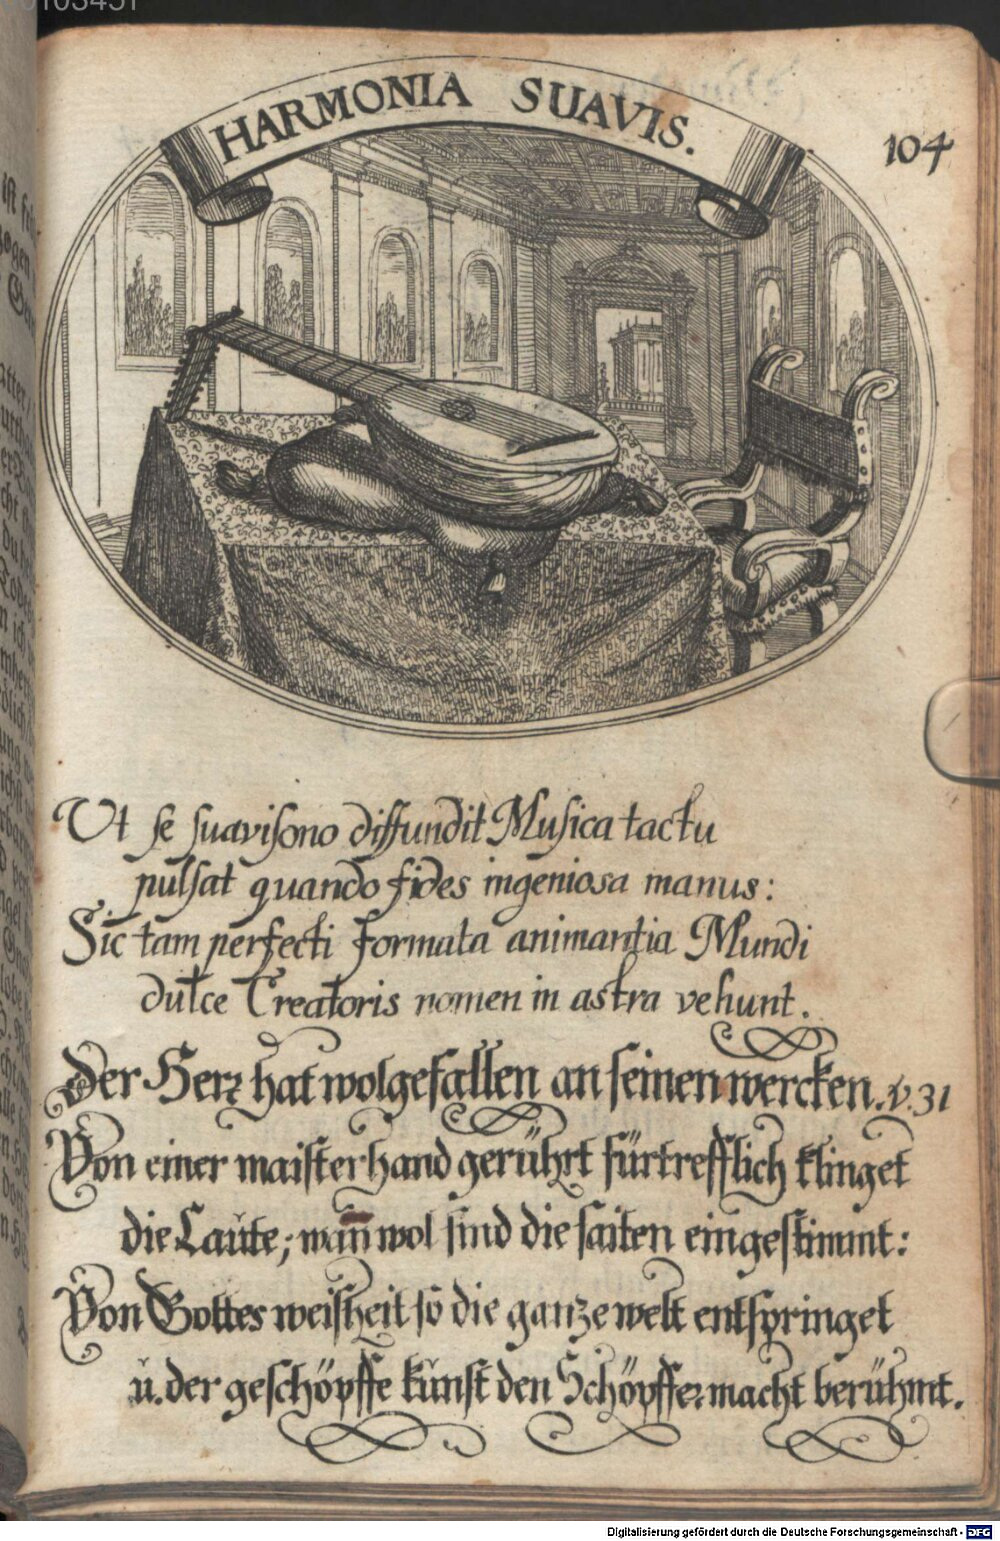 HARMONIA SUAVIS.
104
Ut se suavisono diffundit Musica tactu
pulsat quando fides ingeniosa manus:
Sic tam perfecti formata animantia Mundi
dulce Creatoris nomen in astra vehunt.
Der Herr hat wolgefallen an seinen wercken. v. 31
Von einer maisterhand gerührt fürtrefflich klinget
die Laute; wañ wol sind die saiten eingestimmt:
Von Gottes weisheit so die ganze welt entspringet
u. der geschöpffe kunst den Schöpffer macht berühmt.
Digitalisierung gefördert durch die Deutsche Forschungsgemeinschaft - DFG